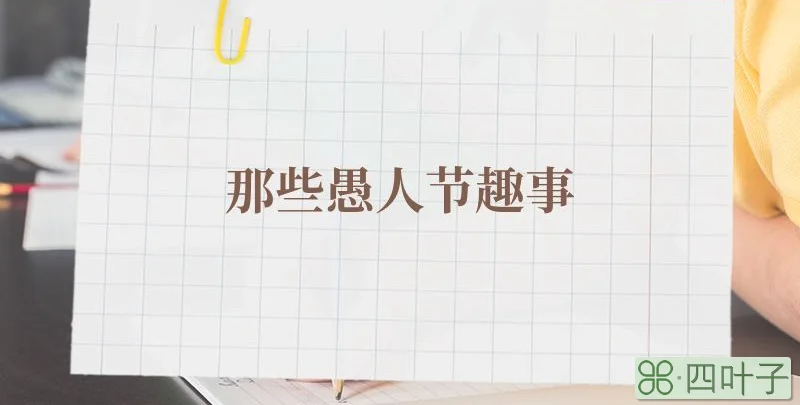 那些愚人节趣事
四叶子